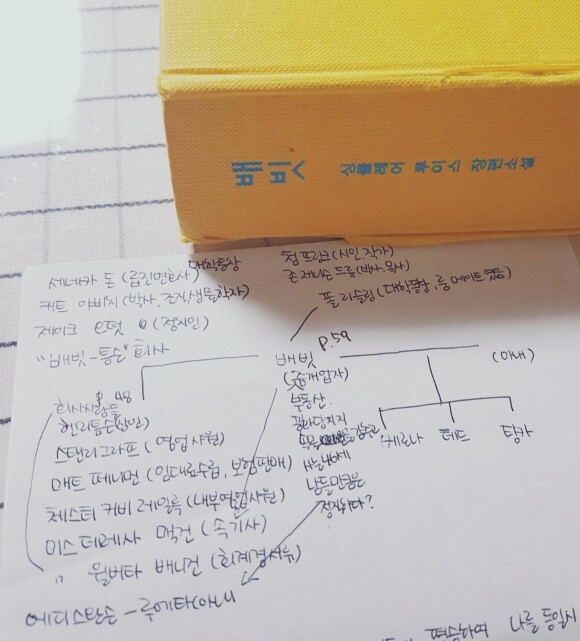 배빗 싱클레어 루이스 장편소설
세네카 돈 (급진변호사) 대학동창
첨 프링크 (시인, 작가)
커트 야비치 (박사,
존 제니슨 드류 (박사, 목사)
폴 리슬링 (대학동창, 룸메이트
제이크 오펏 (정치인)
"배빗-톰슨" 회사
배빗 P.59
(아내)
(중개업자)
P 48
회사사람들
부동산
헨리톰슨
스탠리그라프 (영업사원)
베로나 테드 팅카
매트 페니먼 (임대료수금, 보험판매)
체스터 커비 레일록 (내부영업사원)
남들만큼은
정직하다?
미스 테레사 맥건 (속기사)
" 윌버타 배니건 (회계경서류)
에디스완슨 - 루에타(아내
나를 동일시